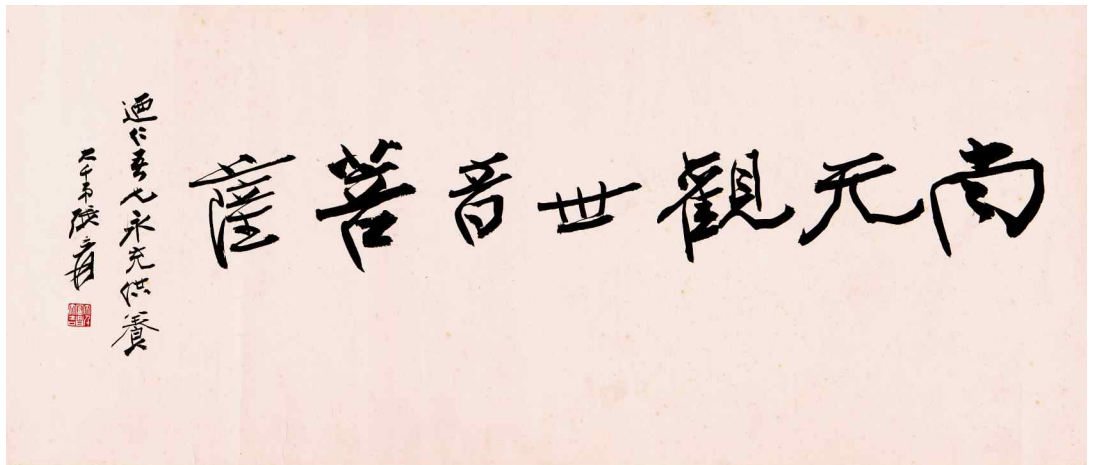 南无觀世音菩薩
迺仁吾兄永充供養
大千弟張爰